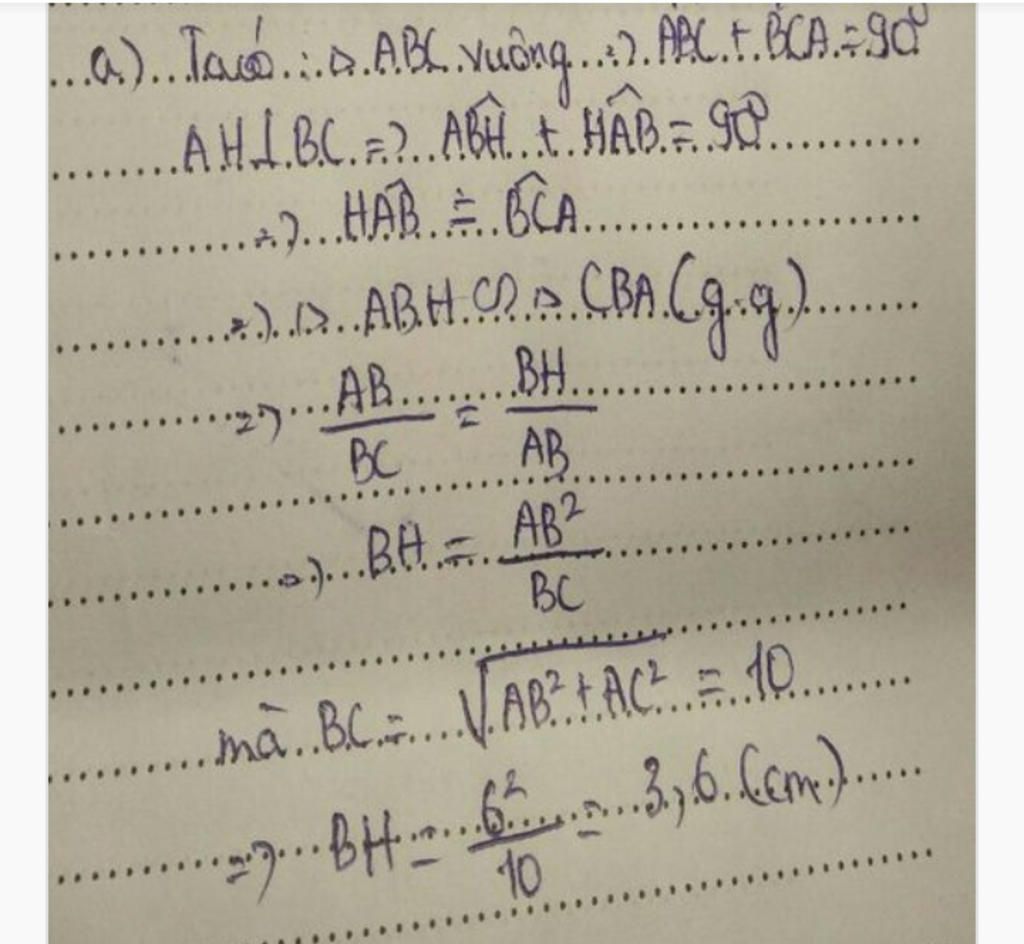 a) Ta có : Δ ABC vuông => ABC + BCA = 90⁰
AH ⊥ BC => ABH + HAB = 90⁰
=> HAB = BCA
=> Δ ABH ∽ Δ CBA (g.g)
=> AB/BC = BH/AB
=> BH = AB²/BC
mà BC = √(AB² + AC²) = 10
=> BH = 6²/10 = 3,6 (cm)